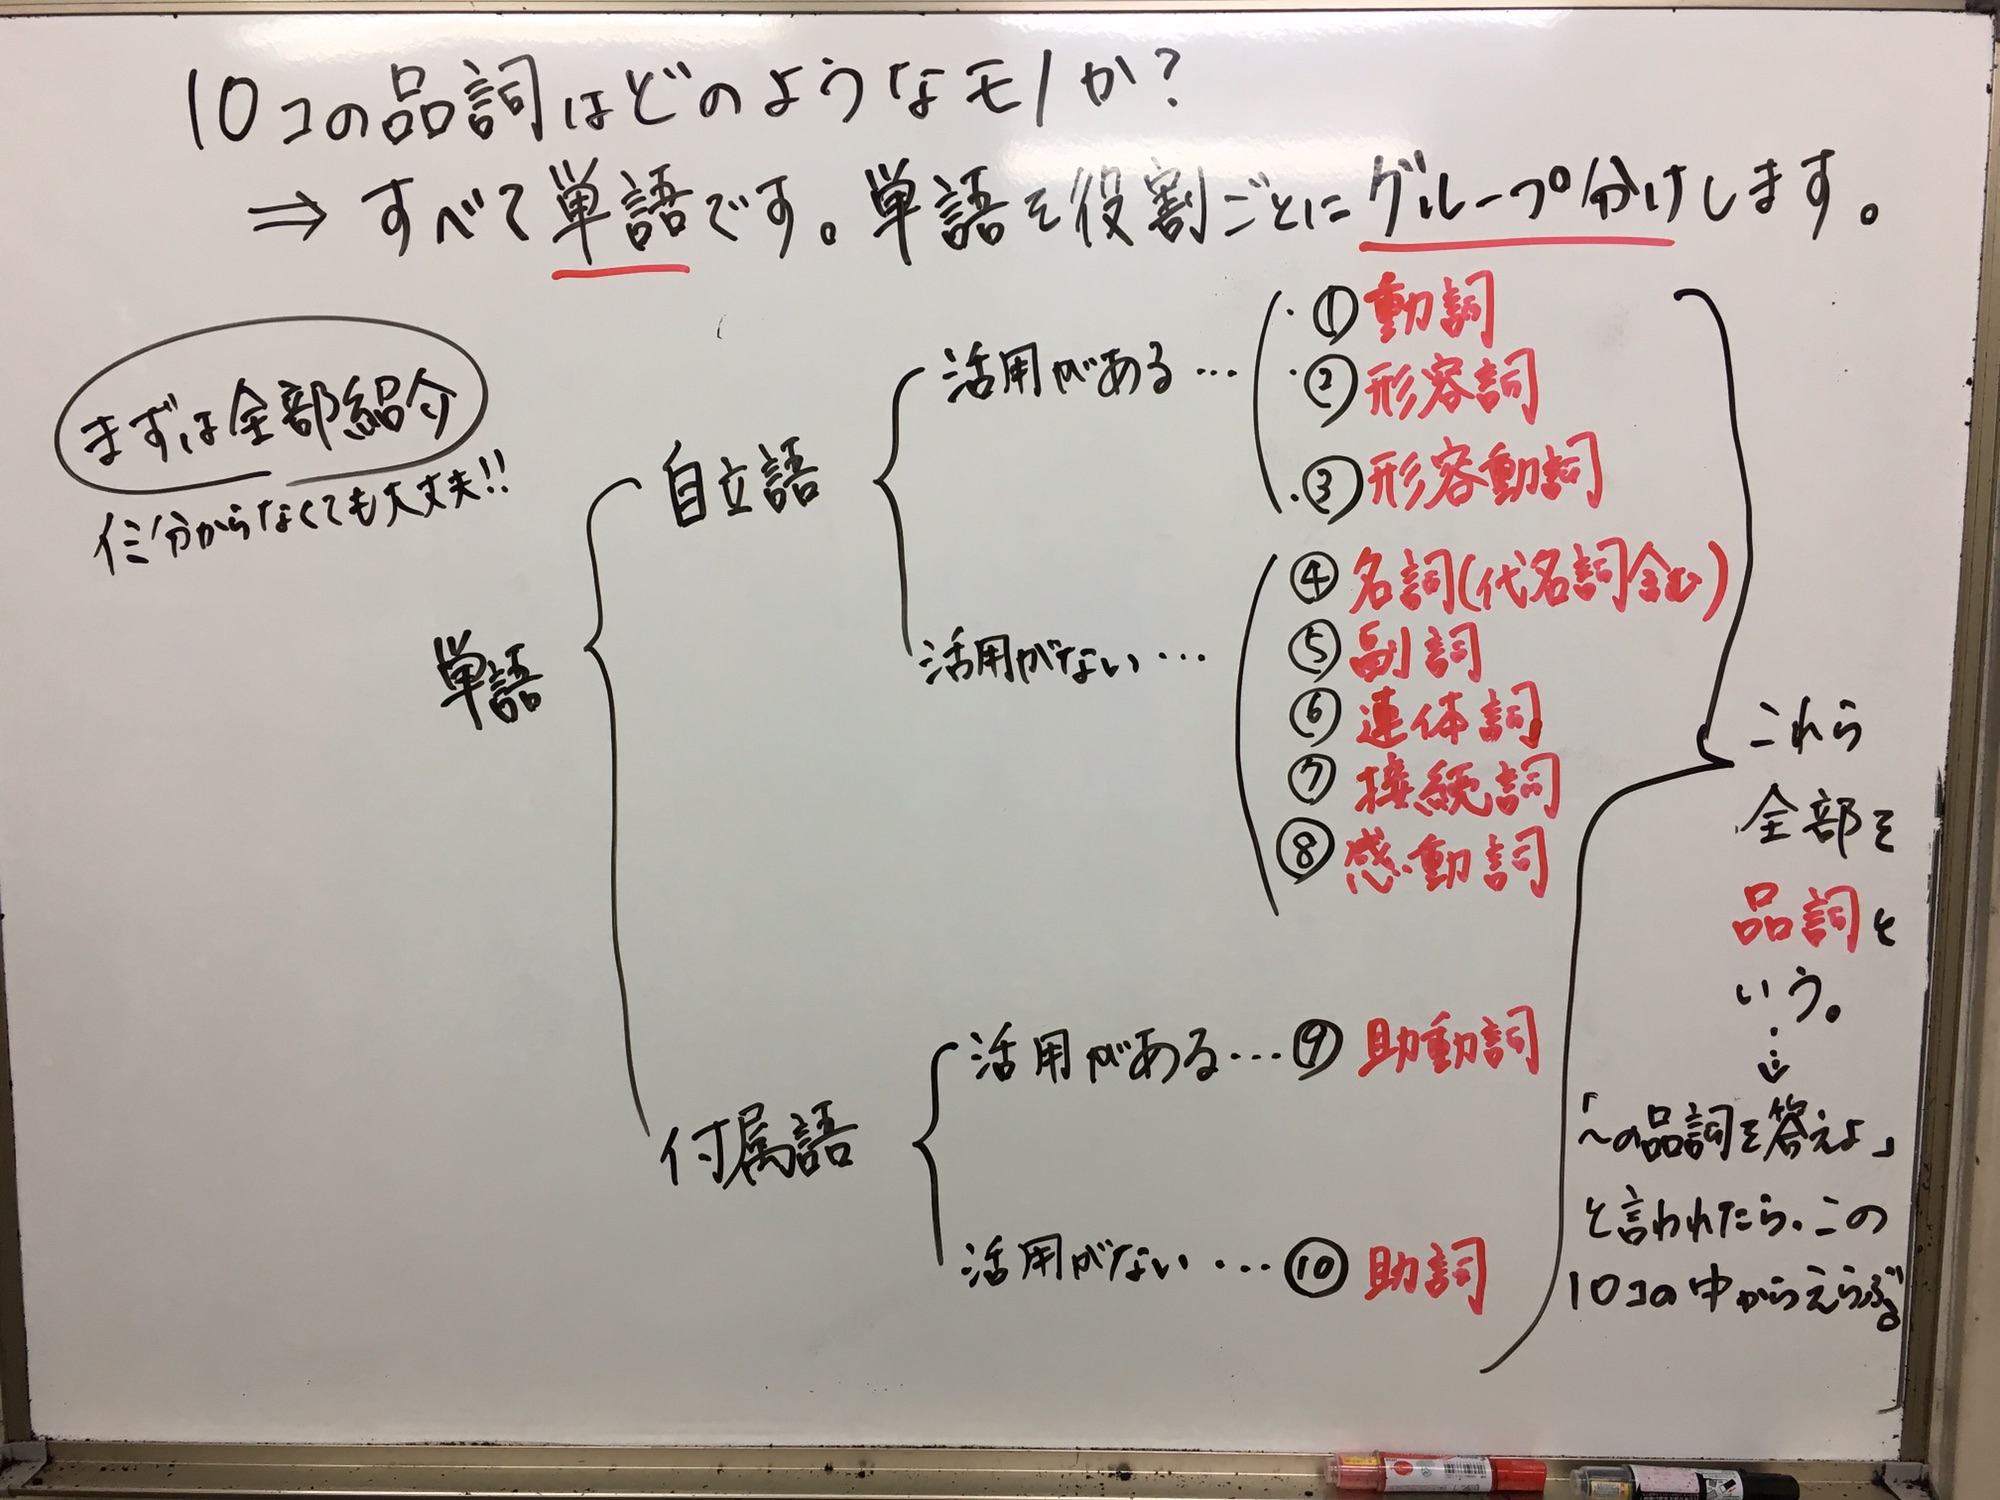 10コの品詞はどのようなモノか？
⇒ すべて単語です。単語を役割ごとにグループ分けします。
まずは全部紹介
分からなくても大丈夫!!
単語
自立語
活用がある…
①動詞
②形容詞
③形容動詞
活用がない…
④名詞(代名詞含む)
⑤副詞
⑥連体詞
⑦接続詞
⑧感動詞
付属語
活用がある…⑨助動詞
活用がない…⑩助詞
これら
全部を
品詞と
いう。
「〜の品詞を答えよ」
と言われたら、この
10コの中からえらぶ。